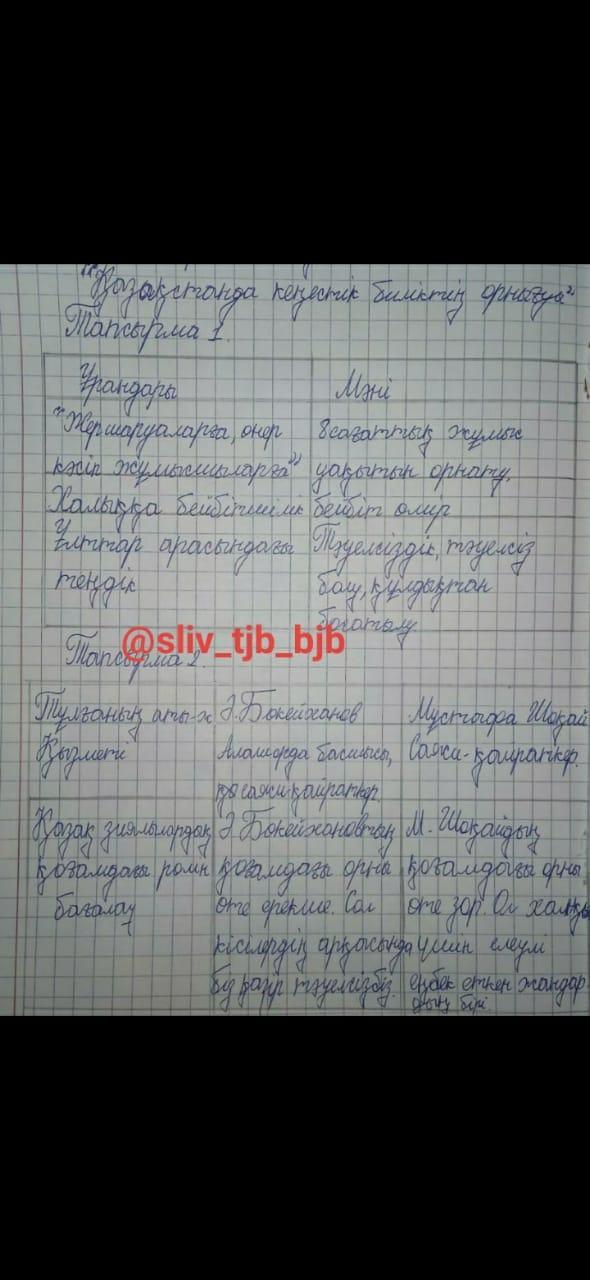 "Қазақстанда кеңестік биліктің орнауы"
Тапсырма 1.
Ұрандары Мәні
"Жер шаруаларға, өнер 8 сағаттық жұмыс
кәсіп жұмысшыларға" уақытын орнату.
Халыққа бейбітшілік бейбіт өмір
Ұлттар арасындағы Тәуелсіздік, тәуелсіз
теңдік болу, құлдықтан
босатылу
@sliv_tjb_bjb
Тапсырма 2.
Тұлғаның аты-ж Ә.Бөкейханов Мұстафа Шоқай
Қызметі Алашорда басшысы, Саяси-қайраткер.
қ саяси қайраткер.
Қазақ зиялылардың Ә.Бөкейхановтың М. Шоқайдың
қоғамдағы ролін қоғамдағы орны қоғамдағы орны
бағалау өте ерекше. Сол өте зор. Ол халқы
кісілердің арқасында үшін елеулі
біз қазір тәуелсізбіз. еңбек еткен жандар
дың бірі.